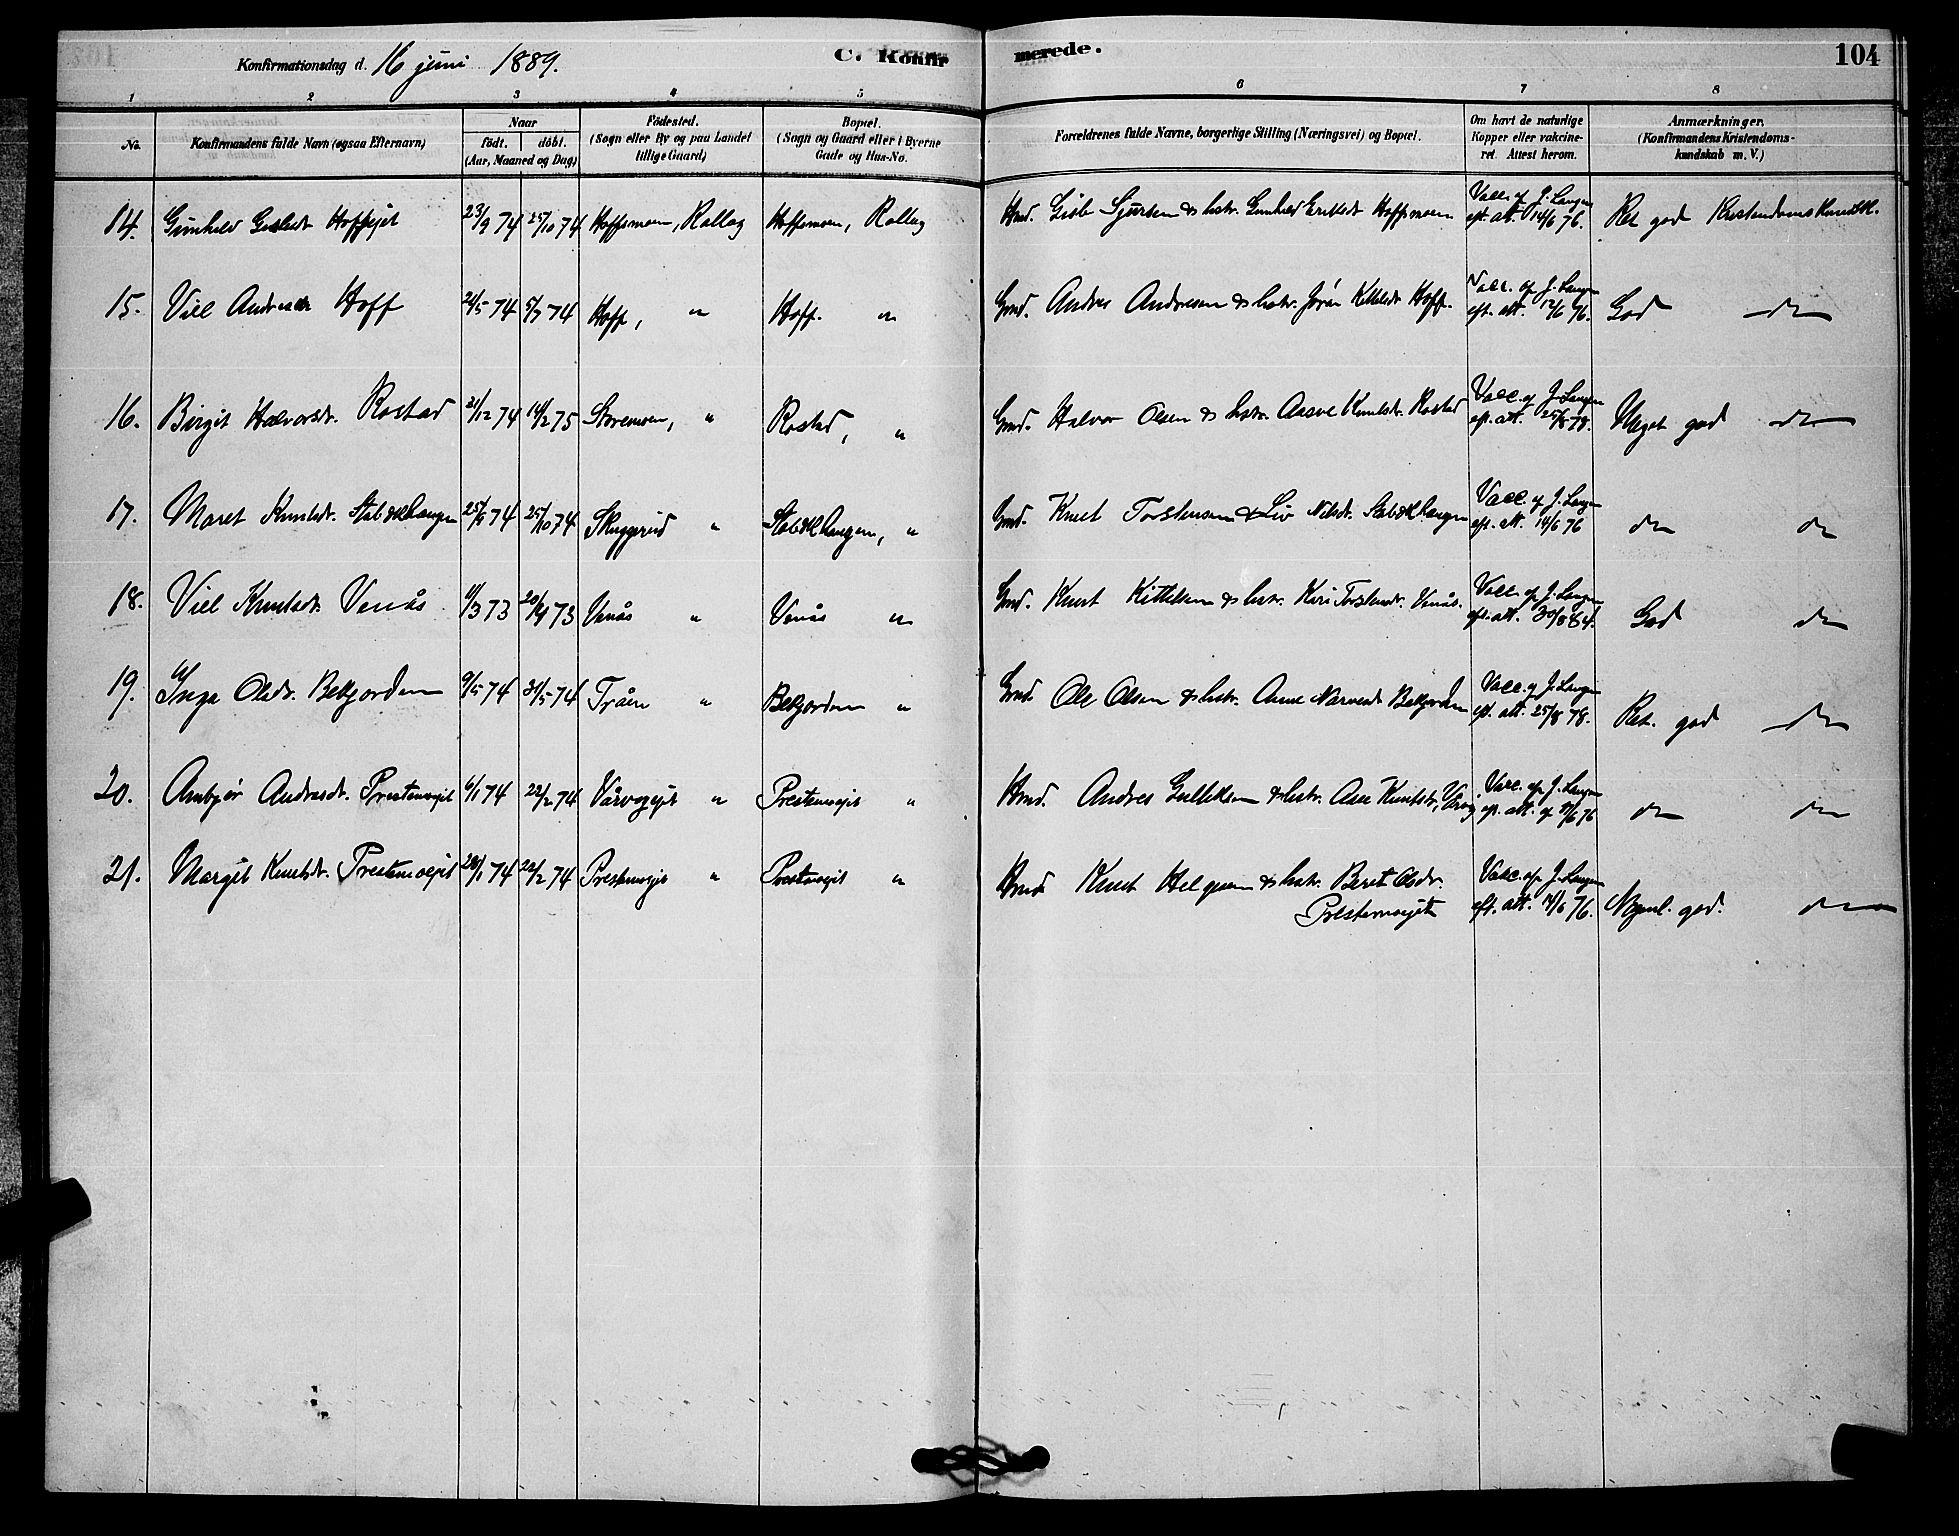 Konfirmationsdag d. 16 juni 1889. C. Konfirmerede. 104
1 2 3 4 5 6 7 8
No. Konfirmandens fulde Navn (ogsaa Efternavn) Naar født. døbt. (Aar, Maaned og Dag) Fødested. (Sogn eller By og paa Landet tillige Gaard) Bopæl. (Sogn og Gaard eller i Byerne Gade og Hus-No. Forældrenes fulde Navne, borgerlige Stilling (Næringsvei) og Bopæl. Om havt de naturlige Kopper eller vakcineret. Attest herom. Anmærkninger. (Konfirmandens Kristendomskundskab m. V.)
14. Gunhild Hoffsjet 23/9 74 25/10 74 Hoffsmoen, Rollag Hoffsmoen, Rollag Hmd. Sjursen & hstr. Gunhild Hoffsmoen Vacc. af J. Langen eft. att. 14/6 76. Ret god Kristendomskundsk.
15. Viel Hoff 24/5 74 5/7 74 Hoff, " Hoff. " Gmd. Andres Andresen & hstr. Jøran Kittelsdt. Hoff. Vacc. af J. Langen eft. att. 12/6 76. God do
16. Birgit Halvorsdr. Rostad 21/12 74 14/2 75 Storemoen, " Rostad, " Gmd. Halvor Olsen & hstr. Aasve Knutsdt. Rostad Vacc. af J. Langen eft. att. 25/8 78. Meget god do
17. Maret Knutsdr. 25/9 74 25/10 74 Skuggerud " " Gmd. Knut Torstensen & Liv Nilsdr. Vacc. af J. Langen eft. att. 14/6 76 do do
18. Viel Knutsdr. Venås 11/3 73 20/4 73 Venås " Venås " Gmd. Knut Kittilsen & hstr. Kari Torstensdr. Venås. Vacc. af J. Langen eft. att. 30/8 84. God do
19. Inga Olsdr. Bekjorden 9/5 74 31/5 74 Tråen " Bekjorden " Gmd. Ole Olsen & hstr. Anne Narvesdt. Bekjorden Vacc. af J. Langen eft. att. 25/8 78. Ret. god do
20. Ambjør Andresdr. Prestemoejet 6/1 74 22/2 74 Vårvogejet " Prestemoejet " Hmd. Andres Gulliksen & hstr. Aase Knutsdr. Vacc. af J. Langen eft. att. af 11/6 76 do do
21. Margit Knutsdr. Prestemoejet 28/1 74 22/2 74 Prestemoejet " Prestemoejet " Hmd. Knut Helgesen & hstr. Berit Olsdr. Vacc. af J. Langen
Prestemoejet eft. att. 14/6 76. god. do